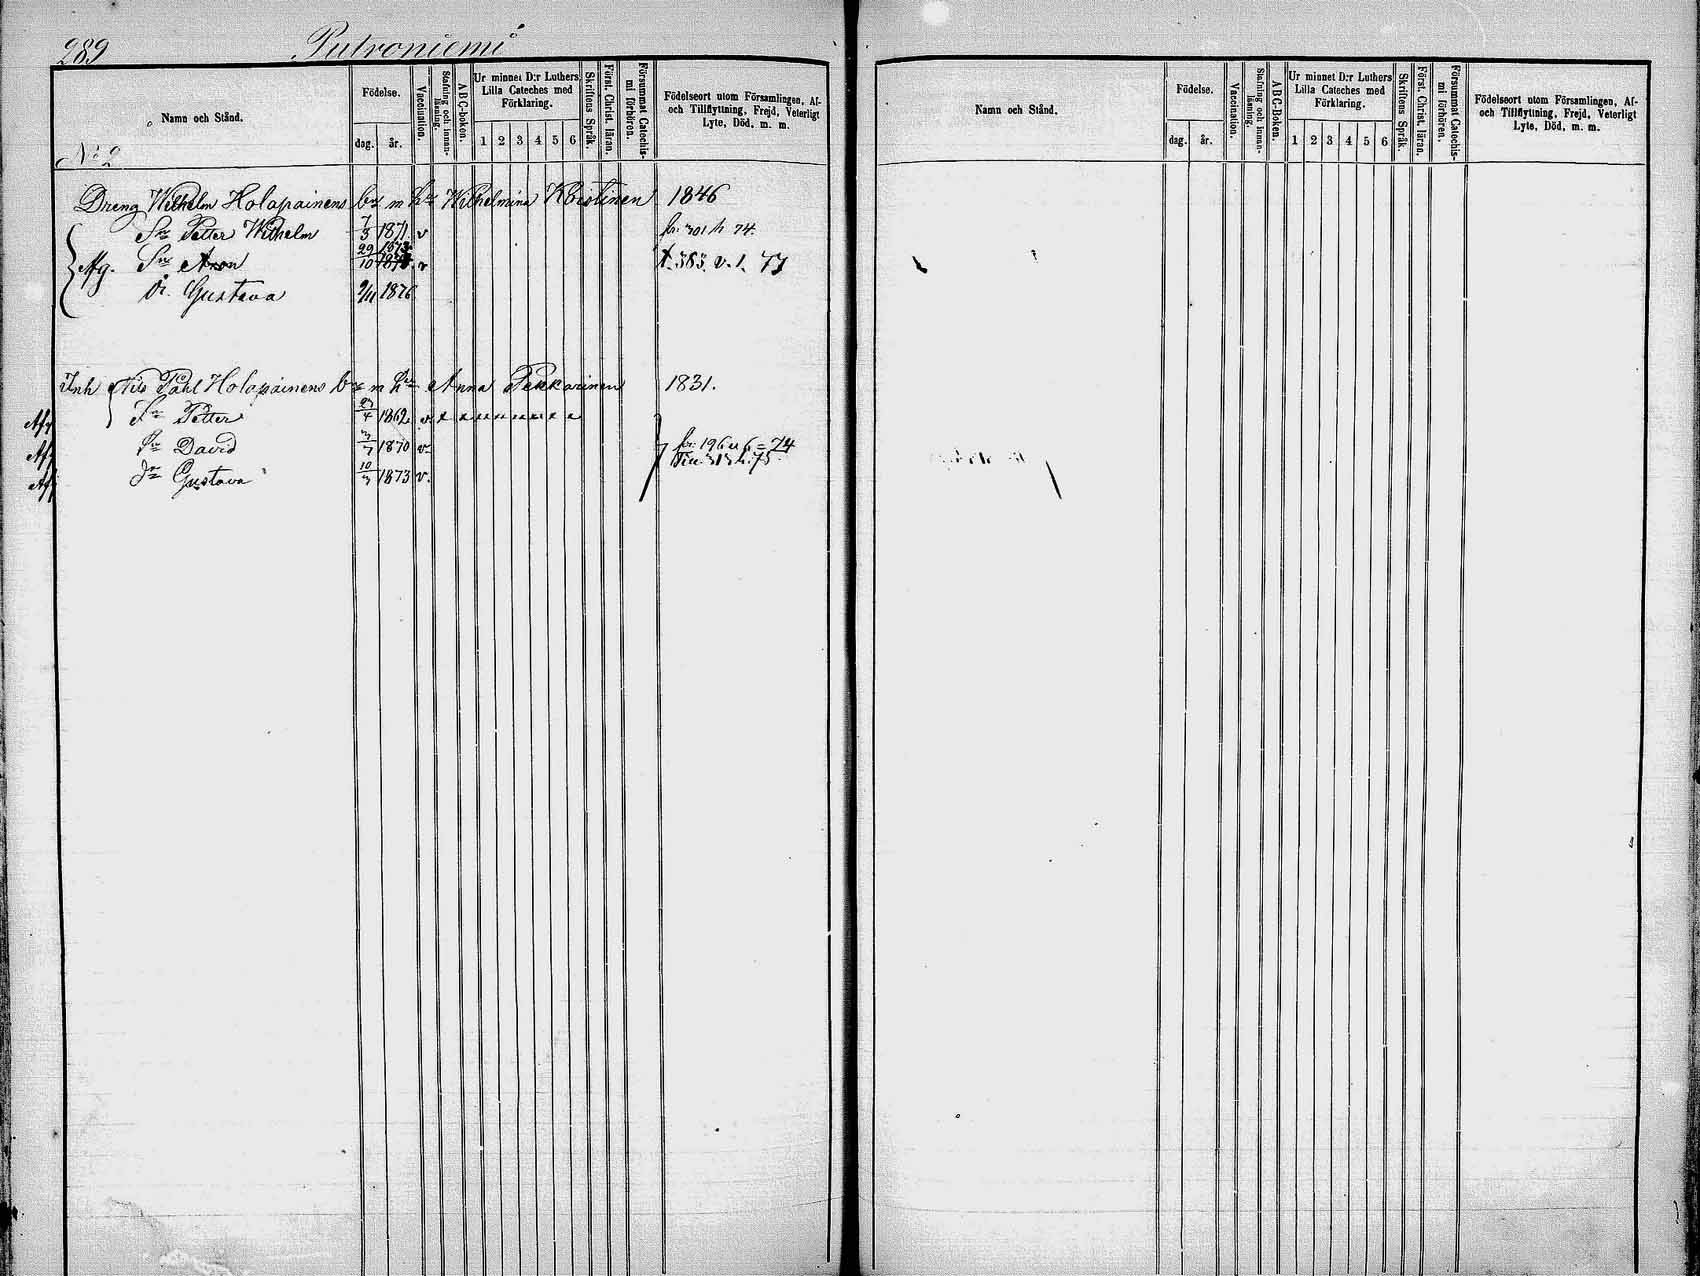 289 Putroniemi
Namn och Stånd.
Födelse.
dag. år.
Vaccination.
Stafning och innan-läsning.
A B C-boken.
Ur minnet D:r Luthers Lilla Cateches med Förklaring.
1 2 3 4 5 6
Skriftens Språk.
Först. Christ. läran.
Försummat Catechis-mi förhören.
Födelseort utom Församlingen, Af- och Tillflyttning, Frejd, Veterligt Lyte, Död, m. m.
N:o 2
Dreng Wilhelm Holapainens bn m hu Wilhelmina Koistinen 1846
Sn Petter Wilhelm 7/3 1871. v fr. 301 h 74.
Afg. Sn Aron 29/10 1873 v t. 383. v. 1. 77
Dr. Gustava 9/11 1876
Inh Nils Påhl Holapainens bn m hu Anna Pekkarinen 1831.
Afg Sn Petter 23/4 1862 v
Afg Sn David 3/7 1870 v fr. 196 u 6 = 74
Afg Dr Gustava 10/3 1873 v. Till 313 h. 75
Namn och Stånd.
Födelse.
dag. år.
Vaccination.
Stafning och innan-läsning.
A B C-Boken.
Ur minnet D:r Luthers Lilla Cateches med Förklaring.
1 2 3 4 5 6
Skriftens Språk.
Först. Christ. läran.
Försummat Catechis-mi förhören.
Födelseort utom Församlingen, Af- och Tillflyttning, Frejd, Veterligt Lyte, Död, m. m.